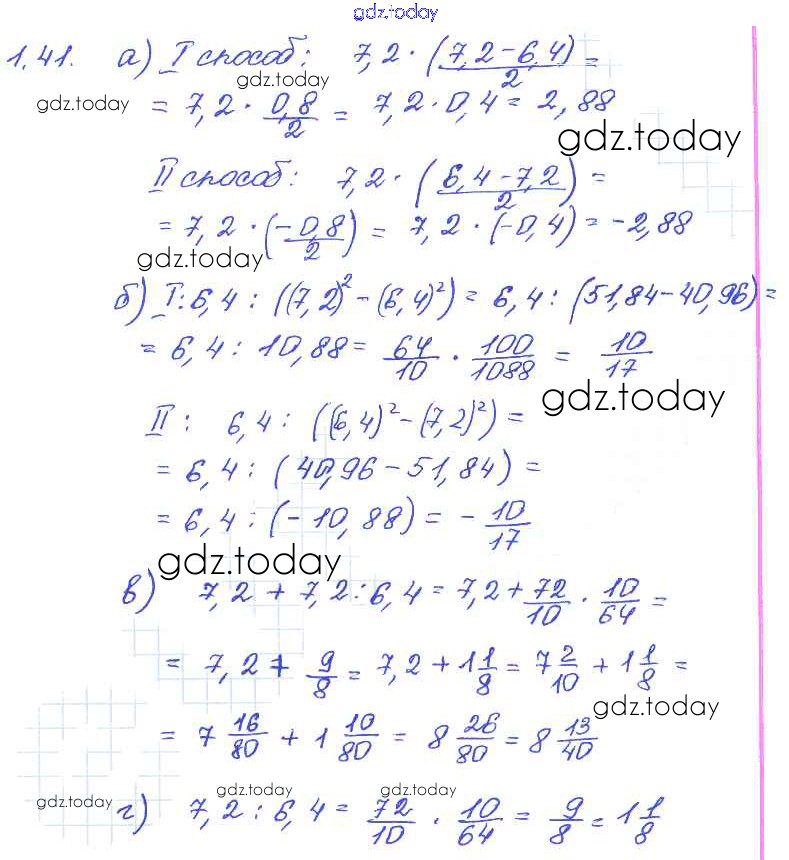 gdz.today
1.41. а) I способ: 7,2 · (7,2-6,4)/2 =
gdz.today gdz.today
= 7,2 · 0,8/2 = 7,2 · 0,4 = 2,88
gdz.today
II способ: 7,2 · (6,4-7,2)/2 =
= 7,2 · (-0,8/2) = 7,2 · (-0,4) = -2,88
gdz.today
б) I: 6,4 : ((7,2)² - (6,4)²) = 6,4 : (51,84-40,96) =
= 6,4 : 10,88 = 64/10 · 100/1088 = 10/17
gdz.today
II: 6,4 : ((6,4)² - (7,2)²) =
= 6,4 : (40,96 - 51,84) =
= 6,4 : (-10,88) = - 10/17
gdz.today
в) 7,2 + 7,2 : 6,4 = 7,2 + 72/10 · 10/64 =
= 7,2 + 9/8 = 7,2 + 1 1/8 = 7 2/10 + 1 1/8 =
gdz.today
= 7 16/80 + 1 10/80 = 8 26/80 = 8 13/40
gdz.today gdz.today gdz.today
г) 7,2 : 6,4 = 72/10 · 10/64 = 9/8 = 1 1/8